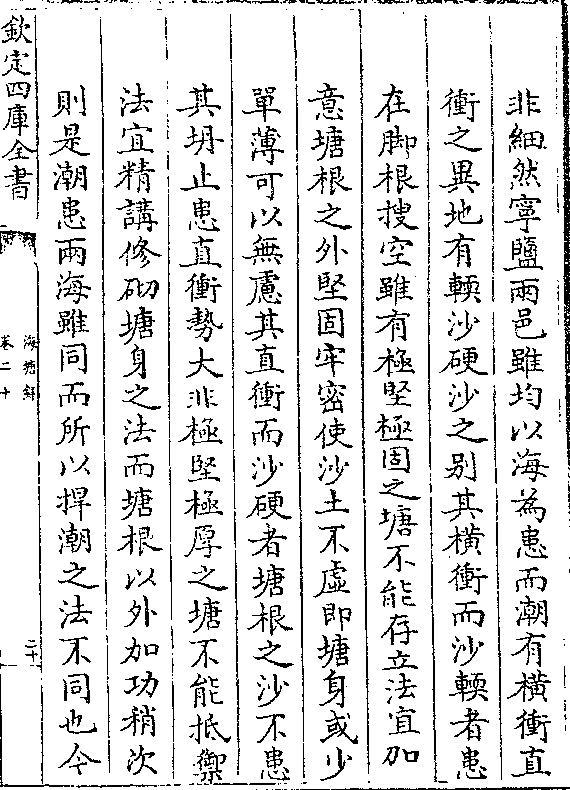 非細然寧鹽兩邑雖均以海為患而潮有橫衝直
衝之異地有輭沙硬沙之别其橫衝而沙輭者患
在脚根搜空雖有極堅極固之塘不能存立法宜加
意塘根之外堅固牢密使沙土不虛即塘身或少
單薄可以無慮其直衝而沙硬者塘根之沙不患
其坍止患直衝勢大非極堅極厚之塘不能抵禦
法宜精講修砌塘身之法而塘根以外加功稍次
則是潮患兩海雖同而所以捍潮之法不同也今
欽定四庫全書
海塘録
卷二十
二十